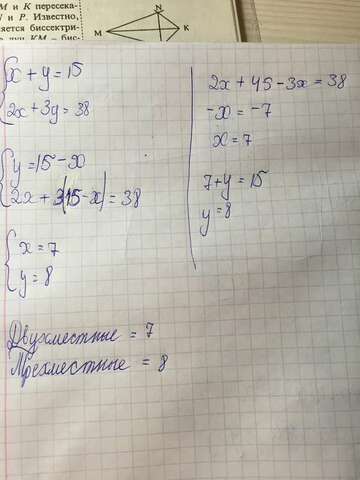 М и К пересека-
и Р. Известно,
яется биссектри-
КМ – бис-
N
M
K
x + y = 15
2x + 3y = 38
y = 15 - x
2x + 3(15 - x) = 38
x = 7
y = 8
2x + 45 - 3x = 38
-x = -7
x = 7
7 + y = 15
y = 8
Двухместные = 7
Трехместные = 8